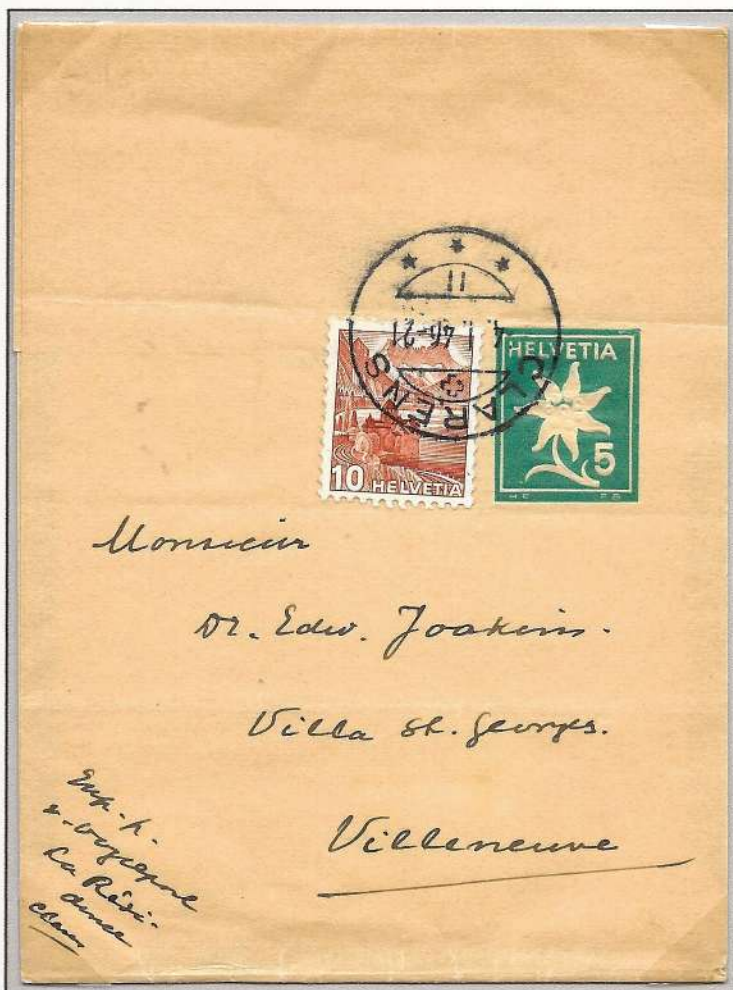 CLARENS
4. I. 46-21
HELVETIA
5
10 HELVETIA
Monsieur
Dr. Edw. Joakim.
Villa St. Georges.
Villeneuve
Exp. h.
La Rési-
dence